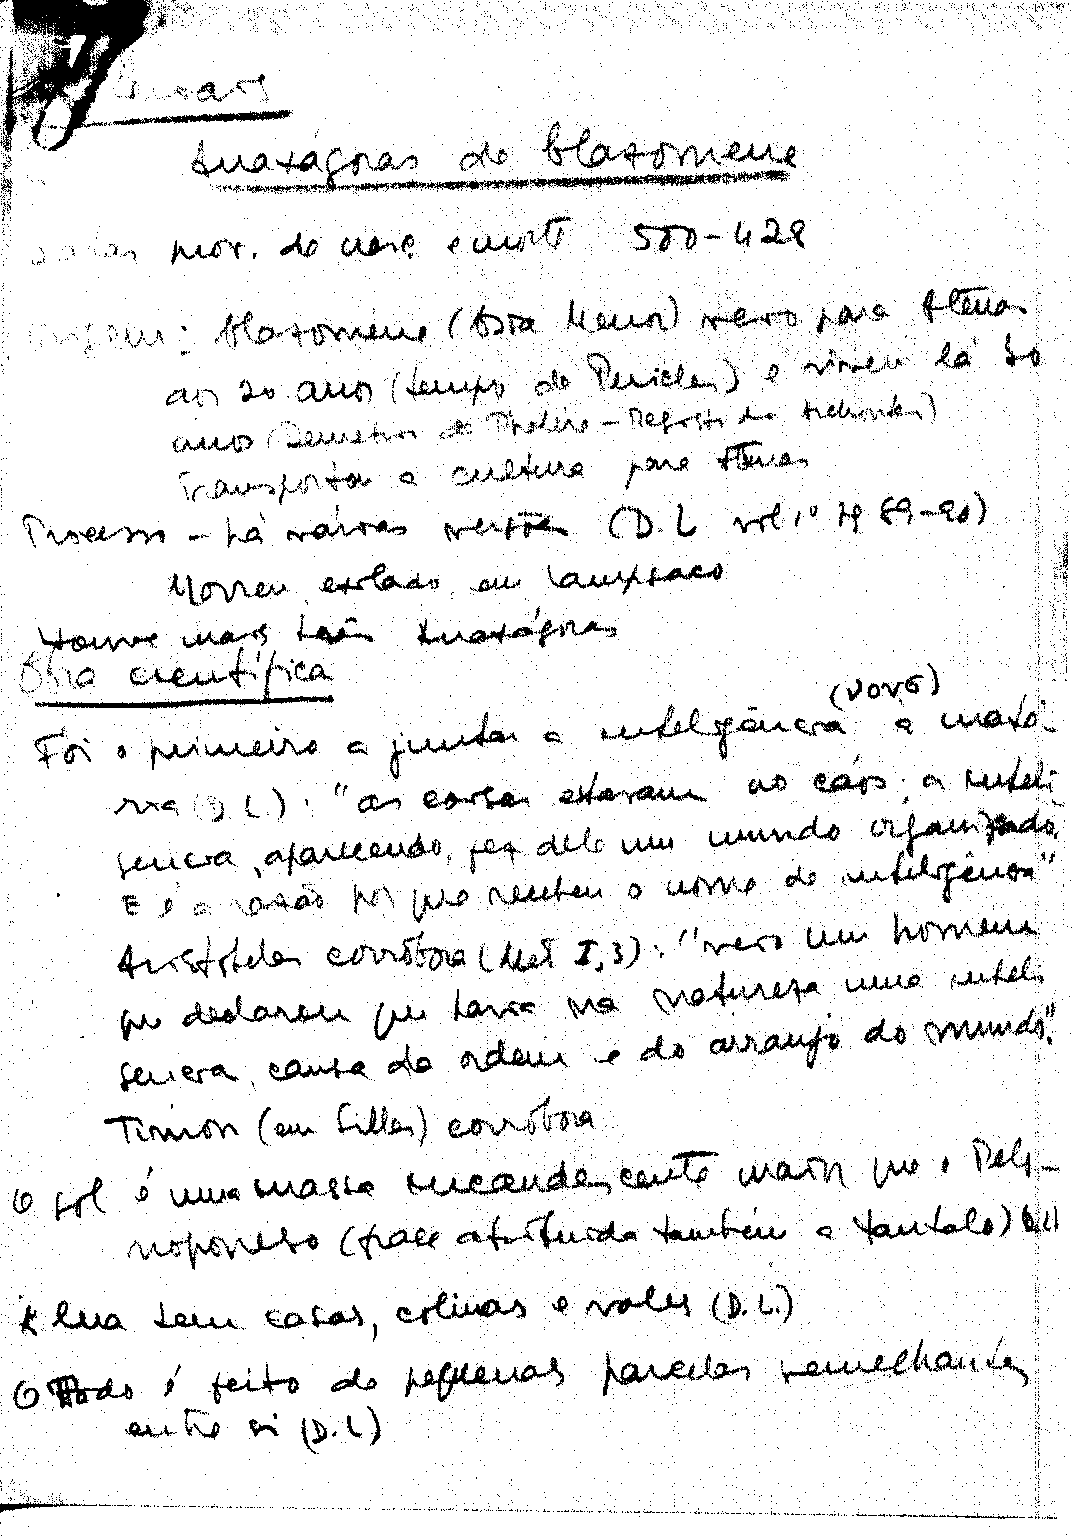 Anaxágoras de Clazomene
Datas prov. de nasc. e morte 500-428
Origem: Clazomene (Ásia Menor) veio para Atenas
aos 20 anos (tempo de Pericles) e viveu lá 30
anos (Demetrios de Phalère - Registo dos Archontes)
Transporta a cultura para Atenas
Processo - há várias versões (D.L vol 1º pg 89-90)
Morreu exilado em Lampsaco
Houve mais três Anaxágoras
Obra científica
(νους)
Foi o primeiro a juntar a inteligência à maté-
ria (D L): "as coisas estavam no cáos; a inteli
gencia, aparecendo, fez dele um mundo organizado.
E é a razão por que recebeu o nome de inteligência"
Aristóteles corrobora (Met I,3): "veio um homem
que declarou que havia na natureza uma inteli
gencia, causa da ordem e do arranjo do mundo".
Timon (em Silles) corrobora
O sol é uma massa incandescente maior que o Pelo-
noponeso (frase atribuida também a Tantalo) D.L
A lua tem casas, colinas e vales (D.L.)
O Todo é feito de pequenas parcelas semelhantes
entre si (D.L)